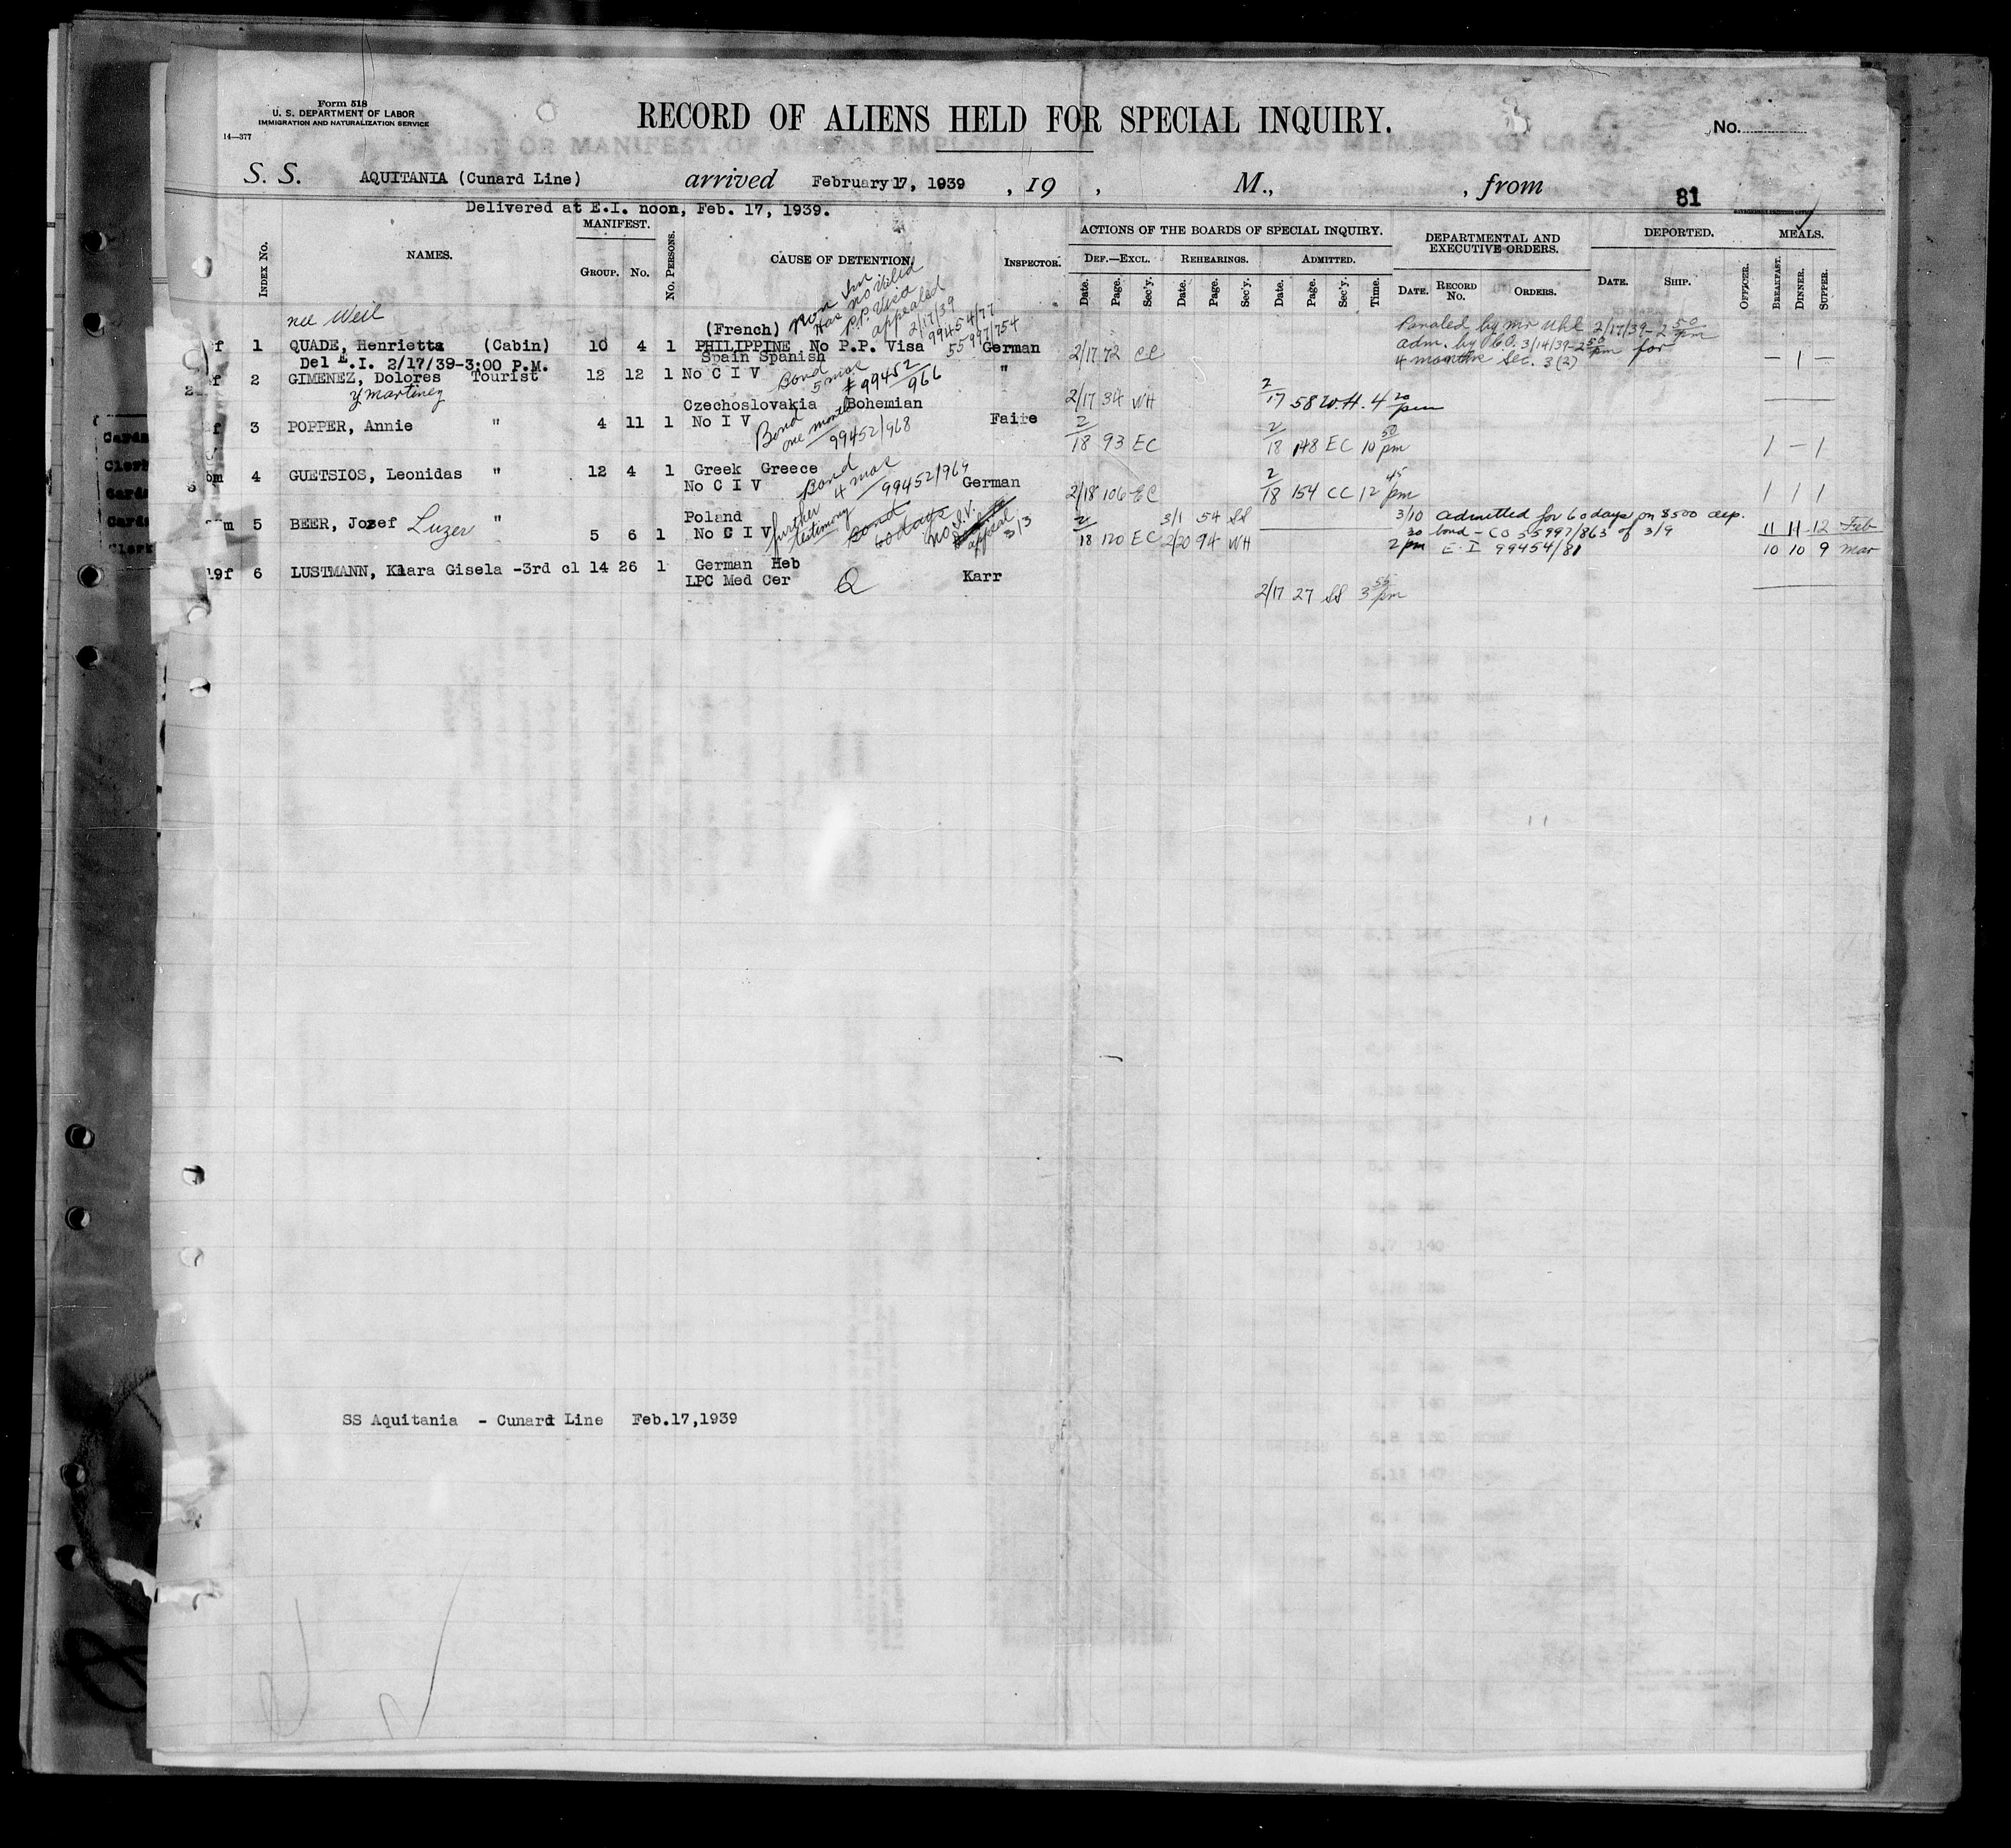 Form 518
U. S. DEPARTMENT OF LABOR
IMMIGRATION AND NATURALIZATION SERVICE
14—377
RECORD OF ALIENS HELD FOR SPECIAL INQUIRY.
No.
S. S. AQUITANIA (Cunard Line) arrived February 17, 1939 , 19 , M., , from
81
Delivered at E.I. noon, Feb. 17, 1939.
INDEX No. NAMES. MANIFEST. GROUP. No. No. PERSONS. CAUSE OF DETENTION. INSPECTOR.
ACTIONS OF THE BOARDS OF SPECIAL INQUIRY. DEPARTMENTAL AND EXECUTIVE ORDERS. DEPORTED. MEALS.
DEF.—EXCL. REHEARINGS. ADMITTED.
Date. Page. Sec'y. Date. Page. Sec'y. Date. Page. Sec'y. Time. DATE. RECORD No. ORDERS. DATE. SHIP. OFFICER. BREAKFAST. DINNER. SUPPER.
nee Weil
(French) Non Im Has no Vilid P.P. Visa appealed 2/17/39 99454/77 55997/754
f 1 QUADE, Henrietta (Cabin) 10 4 1 PHILIPPINE No P.P. Visa German 2/17 72 CC
Paroled by Mr Uhl 2/17/39-2 50 pm
adm. by CO. 3/14/39-2 50 pm for
4 months Sec. 3(2) — 1 —
Del E.I. 2/17/39-3:00 P.M.
Spain Spanish
2 GIMENEZ, Dolores Tourist 12 12 1 No C I V Bond 5 mos # 99452/966 " 2/17 34 WH 2/17 58 W.H. 4 20 pm
y Martinez
Czechoslovakia Bohemian
f 3 POPPER, Annie " 4 11 1 No I V Bond one month 99452/968 Faire 2/18 93 EC 2/18 148 EC 10 50 pm 1 — 1
m 4 GUETSIOS, Leonidas " 12 4 1 Greek Greece
No C I V Bond 4 mos 99452/969 German 2/18 106 EC 2/18 154 CC 12 45 pm 1 1 1
m 5 BEER, Jozef Luzer " 5 6 1 Poland
No C I V further testimony bond 60 days no I.V. appeal 3/3 2/18 120 EC 3/1 54 SS 2/20 94 WH
3/10 admitted for 60 days on $500 dep.
2 30 pm bond - CO 55997/863 of 3/9
E.I 99454/81
11 11 12 Feb
10 10 9 Mar
19f 6 LUSTMANN, Klara Gisela -3rd cl 14 26 1 German Heb
LPC Med Cer Q Karr 2/17 27 SS 3 55 pm
SS Aquitania - Cunard Line Feb.17,1939